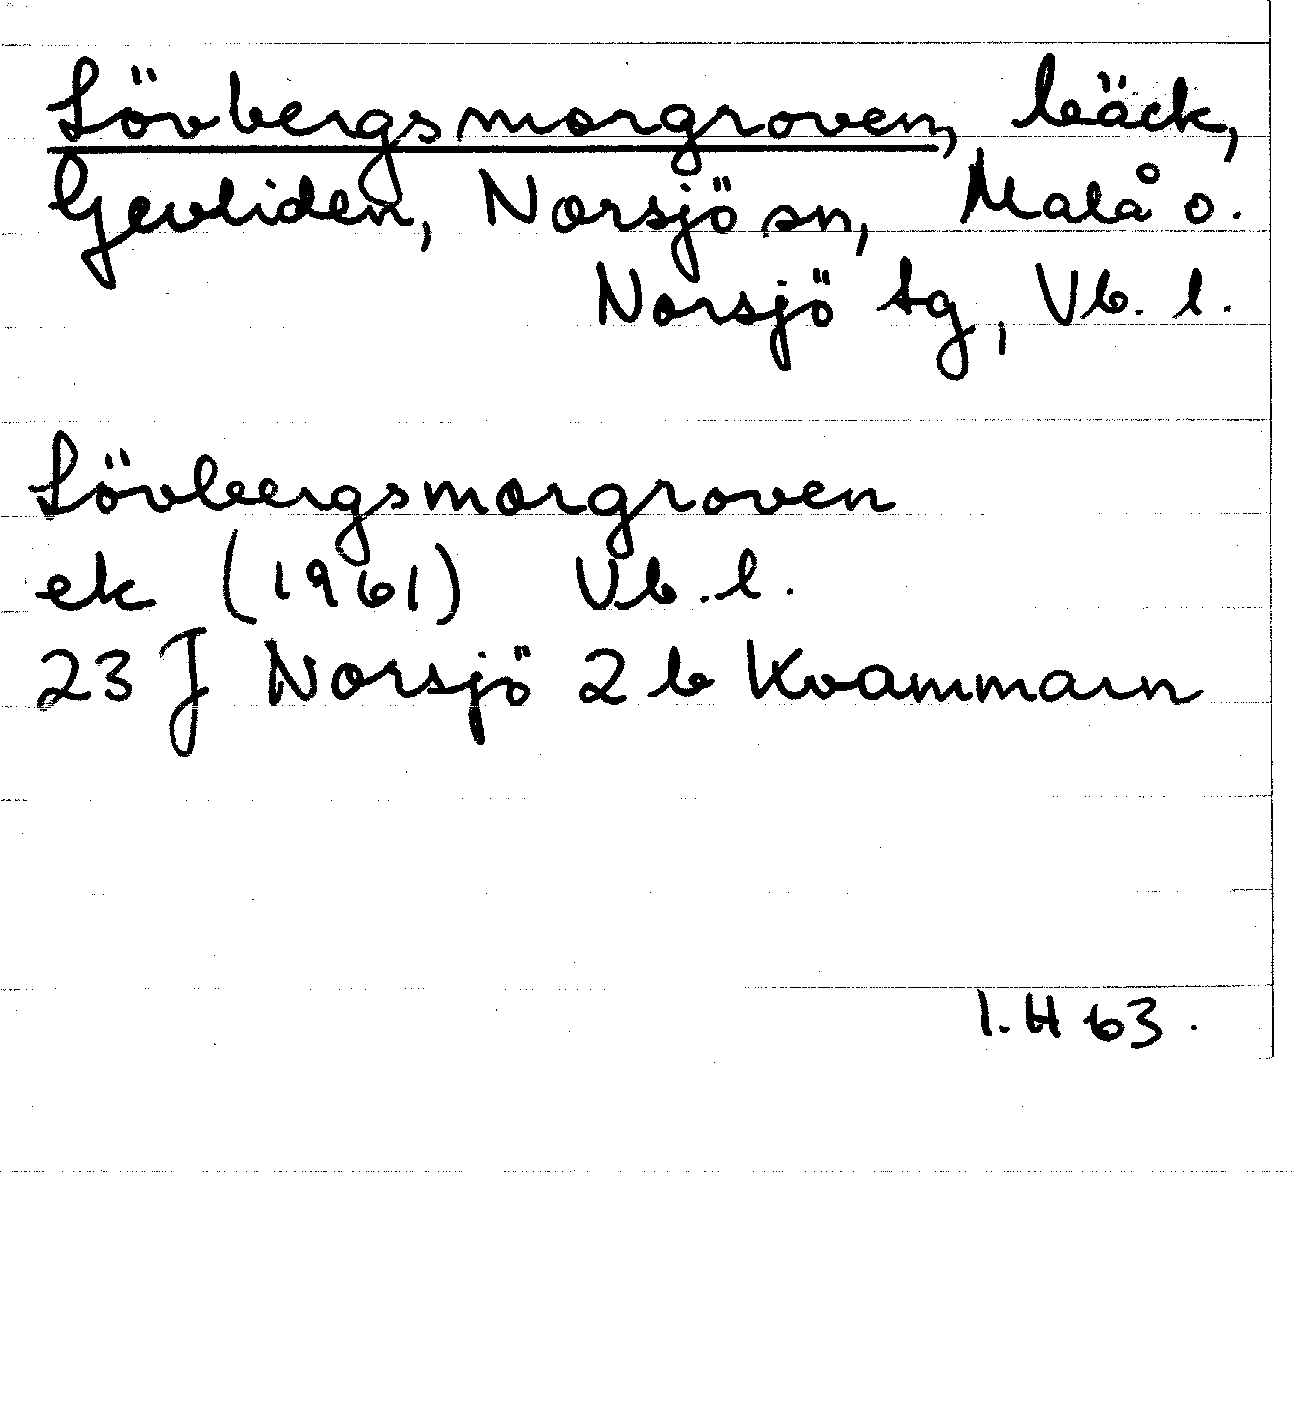 Lövbergsmorgroven, bäck,
Gevliden, Norsjö sn, Malå o.
Norsjö tg, Vb. l.
Lövbergsmorgroven
ek (1961) Vb. l.
23 J Norsjö 2 b Kvammarn
I. H 63.